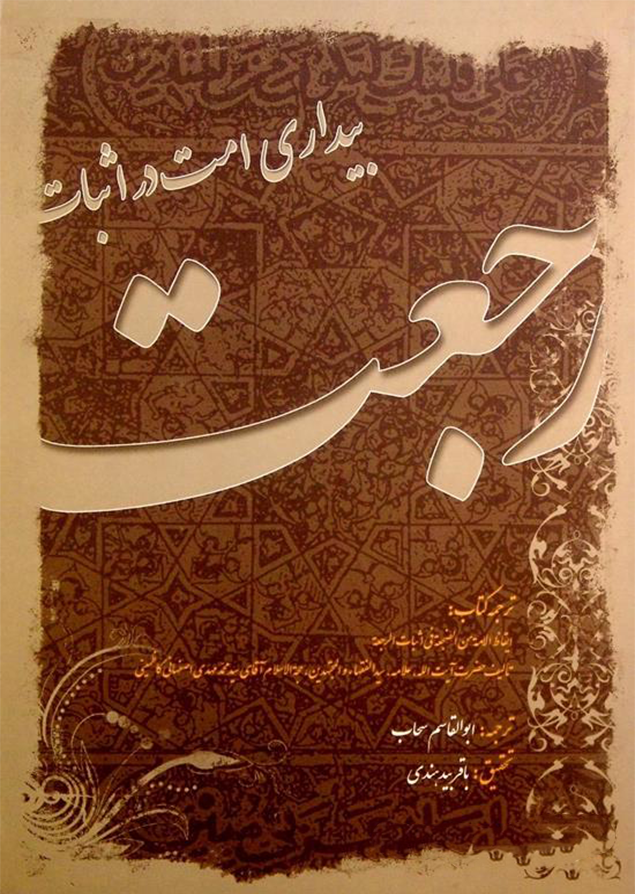 بیداری امت در اثبات
رجعت
ترجمه کتاب:
ایقاظ الامة من الضجعة فی اثبات الرجعة
تألیف حضرت آیت الله، علامه، سید الفقهاء و المجتهدین، حجة الاسلام آقای سید محمد مهدی اصفهانی کاظمینی
ترجمه: ابوالقاسم سحاب
تحقیق: باقر بیدهندی